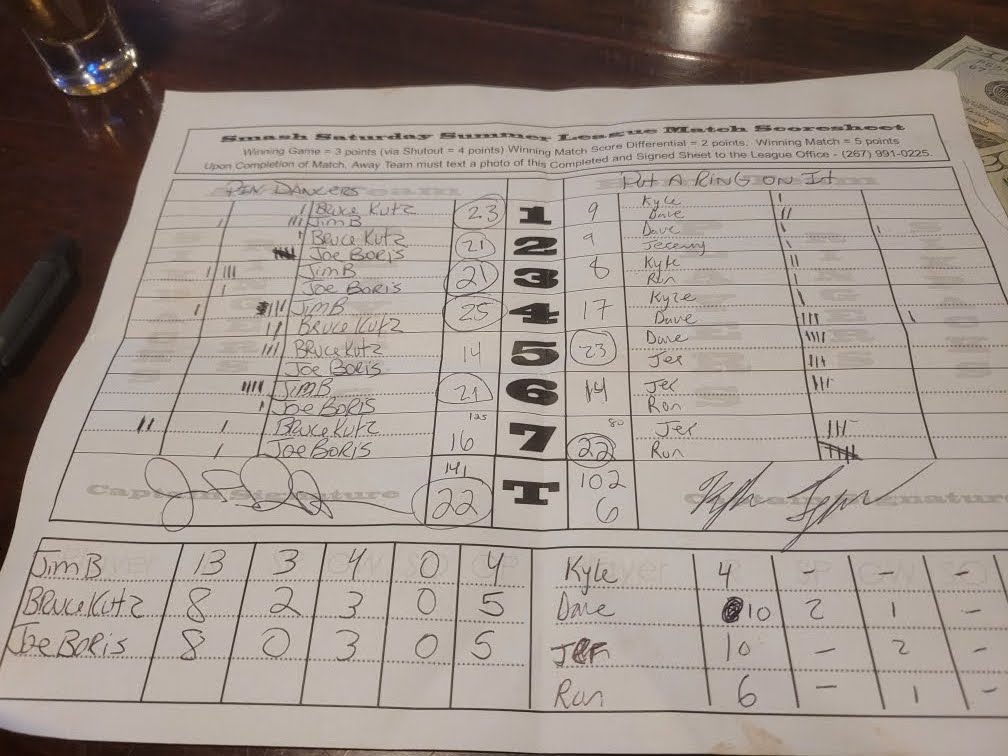 Smash Saturday Summer League Match Scoresheet
Winning Game = 3 points (via Shutout = 4 points) Winning Match Score Differential = 2 points. Winning Match = 5 points
Upon Completion of Match, Away Team must text a photo of this Completed and Signed Sheet to the League Office - (267) 991-0225.
PIN DANCERS PUT A RING ON IT
Bruce Kutz 23 1 9 Kyle
Jim B Dave
Bruce Kutz 21 2 9 Dave
Joe Boris Jeremy
Jim B 21 3 8 Kyle
Joe Boris Ron
Jim B 25 4 17 Kyle
Bruce Kutz Dave
Bruce Kutz 14 5 23 Dave
Joe Boris Jer
Jim B 21 6 14 Jer
Joe Boris Ron
Bruce Kutz 125 16 7 80 22 Jer
Joe Boris Ron
Captain Signature 141 T 102 Captain Signature
22 6
Jim B 13 3 4 0 4 Kyle 4 - -
Bruce Kutz 8 2 3 0 5 Dave 10 2 1 -
Joe Boris 8 0 3 0 5 Jer 10 - 2 -
Ron 6 - 1 -